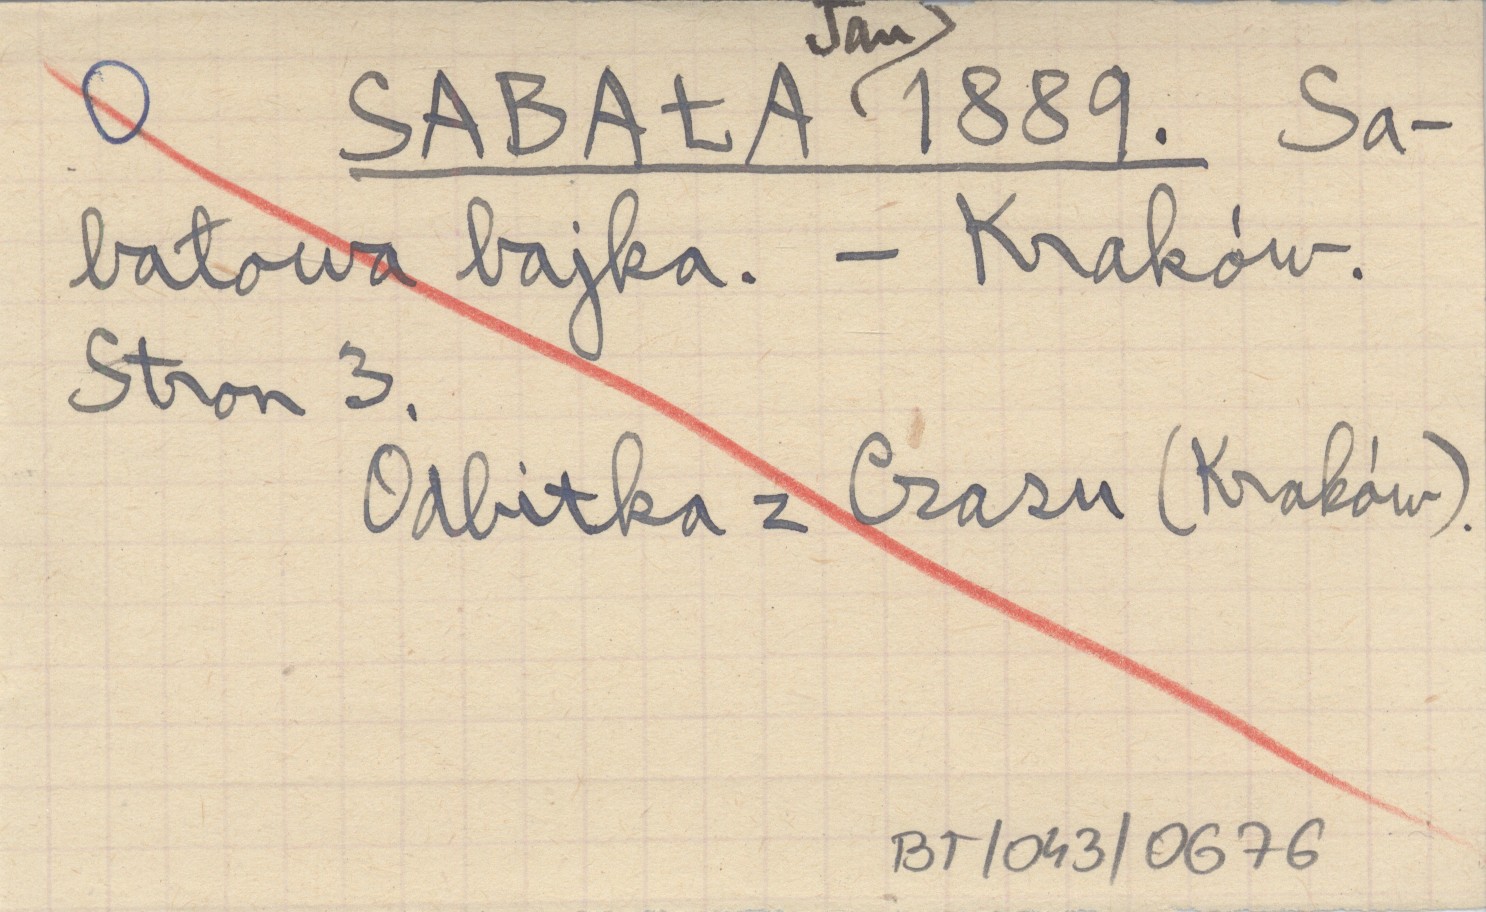 Jan
SABAŁA 1889. Sa-
bałowa bajka. – Kraków.
Stron 3.
Odbitka z Czasu (Kraków).
BT/043/0676